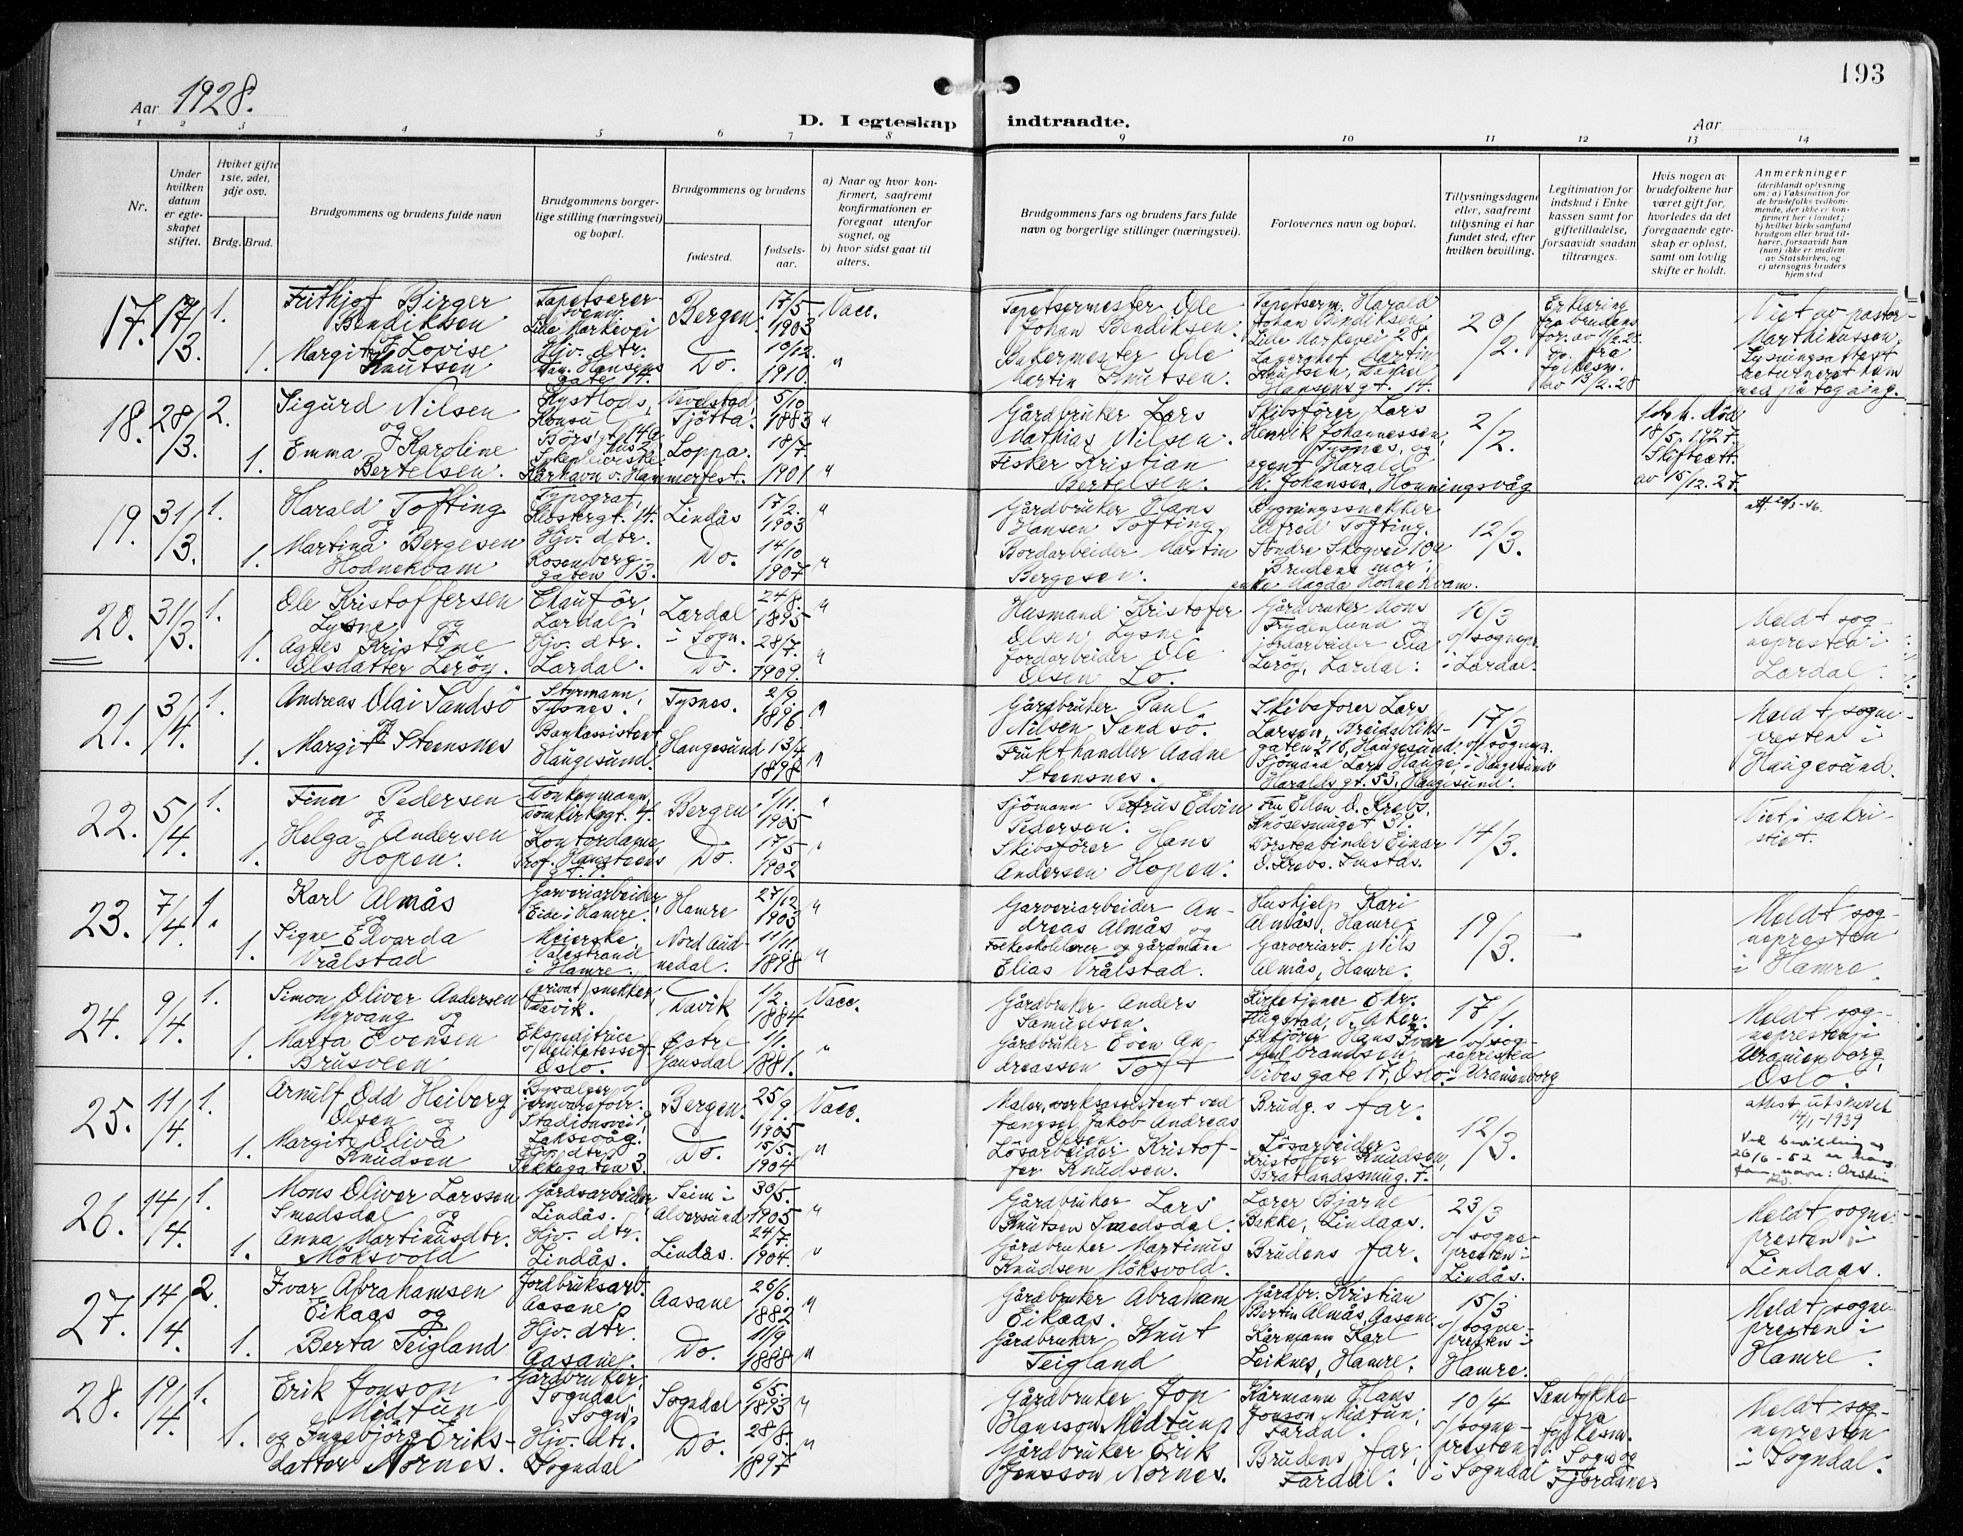 193
Aar 1928.
D. I egteskap indtraadte.
Aar
1 2 3 4 5 6 7 8 9 10 11 12 13 14
Nr.
Under hvilken datum er egteskapet stiftet.
Hvilket gifte 1ste, 2det, 3dje osv.
Brdg. Brud.
Brudgommens og brudens fulde navn
Brudgommens borgerlige stilling (næringsvei) og bopæl.
Brudgommens og brudens
fødested.
fødselsaar.
a) Naar og hvor konfirmert, saafremt konfirmationen er foregaat utenfor sognet, og
b) hvor sidst gaat til alters.
Brudgommens fars og brudens fars fulde navn og borgerlige stillinger (næringsvei).
Forlovernes navn og bopæl.
Tillysningsdagene eller, saafremt tillysning ei har fundet sted, efter hvilken bevilling.
Legitimation for indskud i Enkekassen samt for giftetilladelse, forsaavidt saadan tiltrænges.
Hvis nogen av brudefolkene har været gift før, hvorledes da det foregaaende egteskap er opløst, samt om lovlig skifte er holdt.
Anmerkninger
17. 17/3. 1. Frithjof Birger Bendiksen og
Tapetserersvenn, Lille Markevei
Bergen. 17/5 1903 Vacc.
Tapetsermester Ole Johan Bendiksen.
Tapetserm. Harald Johan Bendiksen, Lille Markevei 28,
20/2.
Erklæring fra brudens for. av 11/2.28 do. fra fylkesm. av 13/2.28
Viet av pastor Marthinussen. Lysningsattest returneret
1. Margit Lovise Knutsen
Hjv. dtr. Dan. Hansens gate 14.
Do. 10/12. 1910. "
Bakermester Ole Martin Knutsen.
Lagerchef Martin Knutsen, Daniel Hansensgt. 14.
18. 28/3. 2. Sigurd Nilsen og
Tjötta. 5/10 1883 "
Gårdbruker Lars Mathias Nilsen.
Skibsfører Lars Henrik Johannessen, Tysnes, og
2/2.
1ste h. död 18/5. 1927. Skifteatt. av 15/12.27.
1. Emma Karoline Bertelsen.
Sykepleierske Hammerfest.
Loppa. 18/7. 1901 "
Fisker Kristian Bertelsen.
agent Harald W. Johansen, Honningsvåg
19. 31/3. 1. Harald Tofting og
Typograf, Klostergt. 14.
Lindås 17/2. 1903 "
Gårdbruker Hans Hansen Tofting,
Bygningssnekker Alfred Tofting, Söndre Skogvei 10a
12/3.
1. Martina Bergesen Hodnekvam
Hjv. dtr. Rosenberggaten 13.
Do. 14/10 1907. "
Bordarbeider Martin Bergesen.
Brudens mor, enke Magda Hodnekvam.
20. 31/3. 1. Ole Kristoffersen Lysne og
Chauför, Lærdal
Lærdal i Sogn. 24/8. 1895 "
Husmand Kristofer Olsen Lysne.
Gårdbruker Mons Frydenlund og
16/3 v/ sognepr. i Lærdal.
Meldt sognepresten i Lærdal.
1. Agnes Kristine Olsdatter Leröy.
Hjv. dtr. Lærdal.
Do. 28/7. 1909. "
Jordarbeider Ole Olsen Lo.
jordarbeider Ola Leröy, Lærdal.
21. 3/4. 1. Andreas Olai Sandsö og
Styrmann, Tysnes.
Tysnes. 2/9 1896 "
Gårdbruker Paul Nilsen Sandsö.
Skibsförer Lars Larsen, Breidabliksgaten 216, Haugesund,
17/3 v/ sognepr. i Haugesund
Meldt sognepresten i Haugesund.
1. Margit Steensnes
Bankassistent Haugesund.
Haugesund 13/4 1898 "
Frukthandler Aadne Steensnes.
Sjömand Lars Hauge, Haraldsgt. 53, Haugesund.
22. 5/4. 1. Finn Pedersen og
Tonkeymann, Domkirkegt. 4.
Bergen 1/11. 1905 "
Sjömann Petrus Edvin Pedersen.
Fru Ellen O. Krebs, Knösesmuget 31.
14/3.
Viet i sakristiet.
1. Helga Andersen Hopen.
Kontordame, Prof. Hansteens gt. 7.
Do. 17/5 1902 "
Skibsförer Hans Andersen Hopen.
Börstebinder Einar O. Krebs. Smstds.
23. 7/4. 1. Karl Almås og
Garveriarbeider, Eide i Hamre.
Hamre 27/12 1903 "
Garveriarbeider Andreas Almås og
Hushjelp Kari Almås, Hamre,
19/3.
Meldt sognepresten i Hamre.
1. Signe Edvarda Vrålstad
Meierske, Valestrand i Hamre.
Nord Audnedal. 11/11 1898 "
Folkeskolelærer og gårdmann Elias Vrålstad.
Garveriarb. Nils Almås, Hamre.
24. 9/4. 1. Simon Oliver Andersen Myrvang og
privat snekker, Davik.
Davik 1/2. 1884 Vacc.
Gårdbruker Anders Samuelsen.
Kirketjener Chr. Haugstad, V. Aker.
17/1. v/ sognepresten i Uranienborg
Meldt sognepresten i Uranienborg, Oslo.
1. Marta Evensen Brusveen
Ekspeditrice v/ delikatessef. Oslo.
Østre Gausdal 1881. "
Gårdbruker Even Andreassen Toft
Gulbrandsen, Vibesgate 17, Oslo.
25. 11/4. 1. Arnulf Odd Heiberg Olsen og
Stadionsvei 9, Laksevåg.
Bergen. 25/9. 1905 Vacc.
Maler, verksassistent ved fængsel Jakob Andreas Olsen.
Brudg.s far.
12/3.
Attest utskrevet 14/1-1939
Ved bevilling av 26/6-52 er hans fam.navn:
1. Margit Oliva Knudsen
Hjv. dtr. Sekkegaten 3.
Do. 15/5. 1904. "
Lösarbeider Kristoffer Knudsen.
Lösarbeider Kristoffer Knudsen, Bratlandssmug. 7.
26. 14/4. 1. Mons Oliver Larssen Smedsdal og
Gårdsarbeider, Lindås.
Seim i Alversund 30/5. 1905 "
Gårdbruker Lars Knutsen Smedsdal.
Lærer Bjarne Bekke, Lindaas.
23/3 v/ sognepresten i Lindås.
Meldt sognepresten i Lindaas.
1. Anna Martinusdtr. Möksvold
Hjv. dtr. Lindås.
Lindås. 24/7. 1904. "
Gårdbruker Martinus Knudsen Möksvold.
Brudens far.
27. 14/4. 2. Ivar Abrahamsen Eikaas og
Jordbruksarb. Aasane
Aasane 26/6. 1882 "
Gårdbruker Abraham Eikaas.
Gårdbr. Kristian Bertin Almås, Aasane
15/3 v/ sognepresten i Hamre.
Meldt sognepresten i Hamre.
1. Berta Teigland
Hjv. dtr. Aasane.
Do. 11/9 1888 "
Gårdbruker Knut Teigland
Kårmann Karl Leiknes, Hamre.
28. 19/4. 1. Erik Jonson Midtun
Gårdbruker Sogndal Sogn.
Sogndal 6/5. 1893 "
Gårdbruker Jon Hansson Midtun,
Kårmann Hans Jonson Midtun, Fardal.
10/4 v/ sognepresten i Sogndal
Samtykke fra fylkesm. i Sogn og Fjordane.
Meldt sognepresten i Sogndal.
1. og Ingebjörg Eriksdatter Nornes.
Hjv. dtr. Sogndal
Do. 28/8. 1897 "
Gårdbruker Erik Jensson Nornes.
Brudens far, Fardal.